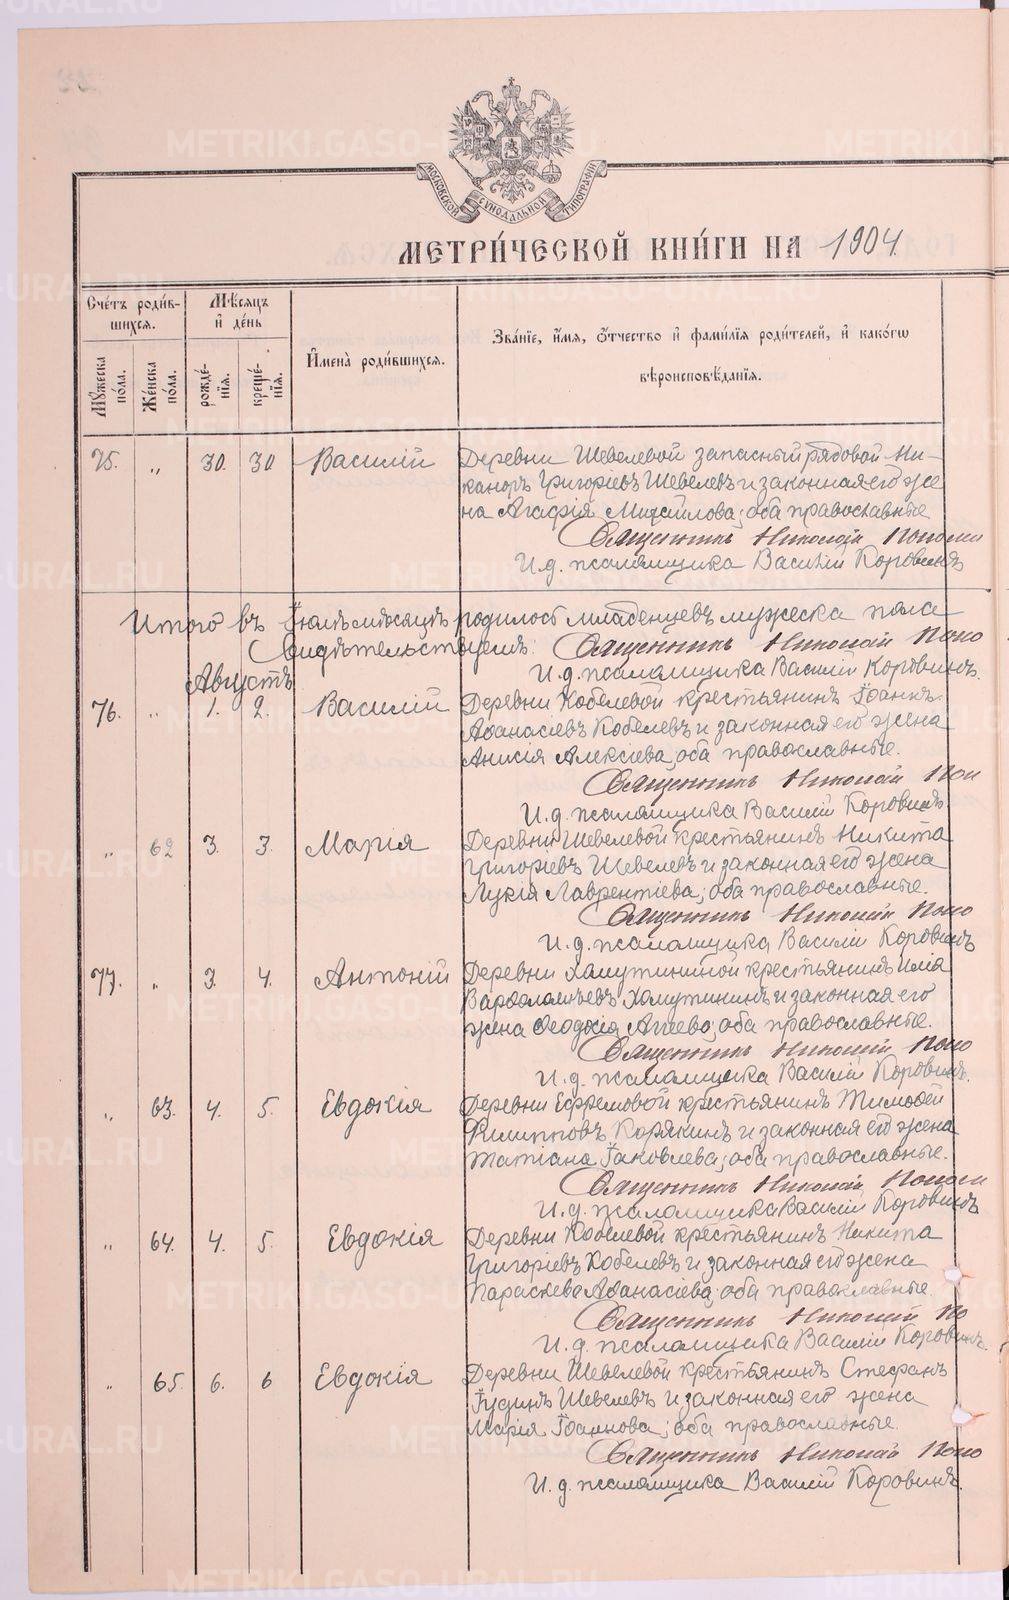 МОСКОВСКОЙ СѴНОДАЛЬНОЙ ТИПОГРАФІИ
МЕТРИ́ЧЕСКОЙ КНИ́ГИ НА 1904.
Сче́тъ роди́вшихся.
Мѣсяцъ и҆ де́нь
Мꙋ́жеска по́ла.
Же́нска по́ла.
рожде́нїѧ.
креще́нїѧ.
И҆мена̀ роди́вшихся.
Зва́нїе, и҆́мя, ѻ҆́тчество и҆ фами́лїѧ роди́телей, и҆ како́гѡ
вѣроисповѣ́данїѧ.
75. „ 30. 30 Василій Деревни Шевелевой запасный рядовой Ни-
каноръ Григоріевъ Шевелевъ и законная его же
на Агафія Михаилова; оба православные
Священникъ Николай
И.д. псаломщика Василій Коровинъ
Итого въ Іюлѣ мѣсяцѣ родилось младенцевъ мужеска пола
Свидѣтельствуемъ: Священникъ Николай Попо
И.д. псаломщика Василій Коровинъ.
Августъ
76. „ 1. 2. Василій Деревни Кобелевой крестьянинъ Іоаннъ
Аѳанасіевъ Кобелевъ и законная его жена
Анисія Алексіева, оба православные.
Священникъ Николай Поп
И.д. псаломщика Василій Коровинъ
„ 62 3. 3. Марія Деревни Шевелевой крестьянинъ Никита
Григоріевъ Шевелевъ и законная его жена
Лукія Лаврентіева; оба православные.
Священникъ Николай Попо
И.д. псаломщика Василій Коровинъ
77. „ 3. 4. Антоній Деревни Хомутининой крестьянинъ Илія
Варѳоломѣевъ Хомутининъ и законная его
жена Ѳеодосія Агіева; оба православные.
Священникъ Николай Попо
И.д. псаломщика Василій Коровинъ.
„ 63. 4. 5. Евдокія Деревни Ефремовой крестьянинъ Тимоѳей
Филипповъ Корякинъ и законная его жена
Татіана Іаковлева; оба православные.
Священникъ Николай
И.д. псаломщика Василій Коровинъ
„ 64. 4. 5. Евдокія Деревни Кобелевой крестьянинъ Никита
Григоріевъ Кобелевъ и законная его жена
Параскева Аѳанасіева; оба православные.
Священникъ Николай По
И.д. псаломщика Василій Коровинъ.
„ 65. 6. 6 Евдокія Деревни Шевелевой крестьянинъ Стефанъ
Іудинъ Шевелевъ и законная его жена
Марія Іоаннова; оба православные.
Священникъ Николай Попо
И.д. псаломщика Василій Коровинъ.
METRIKI.GASO-URAL.RU